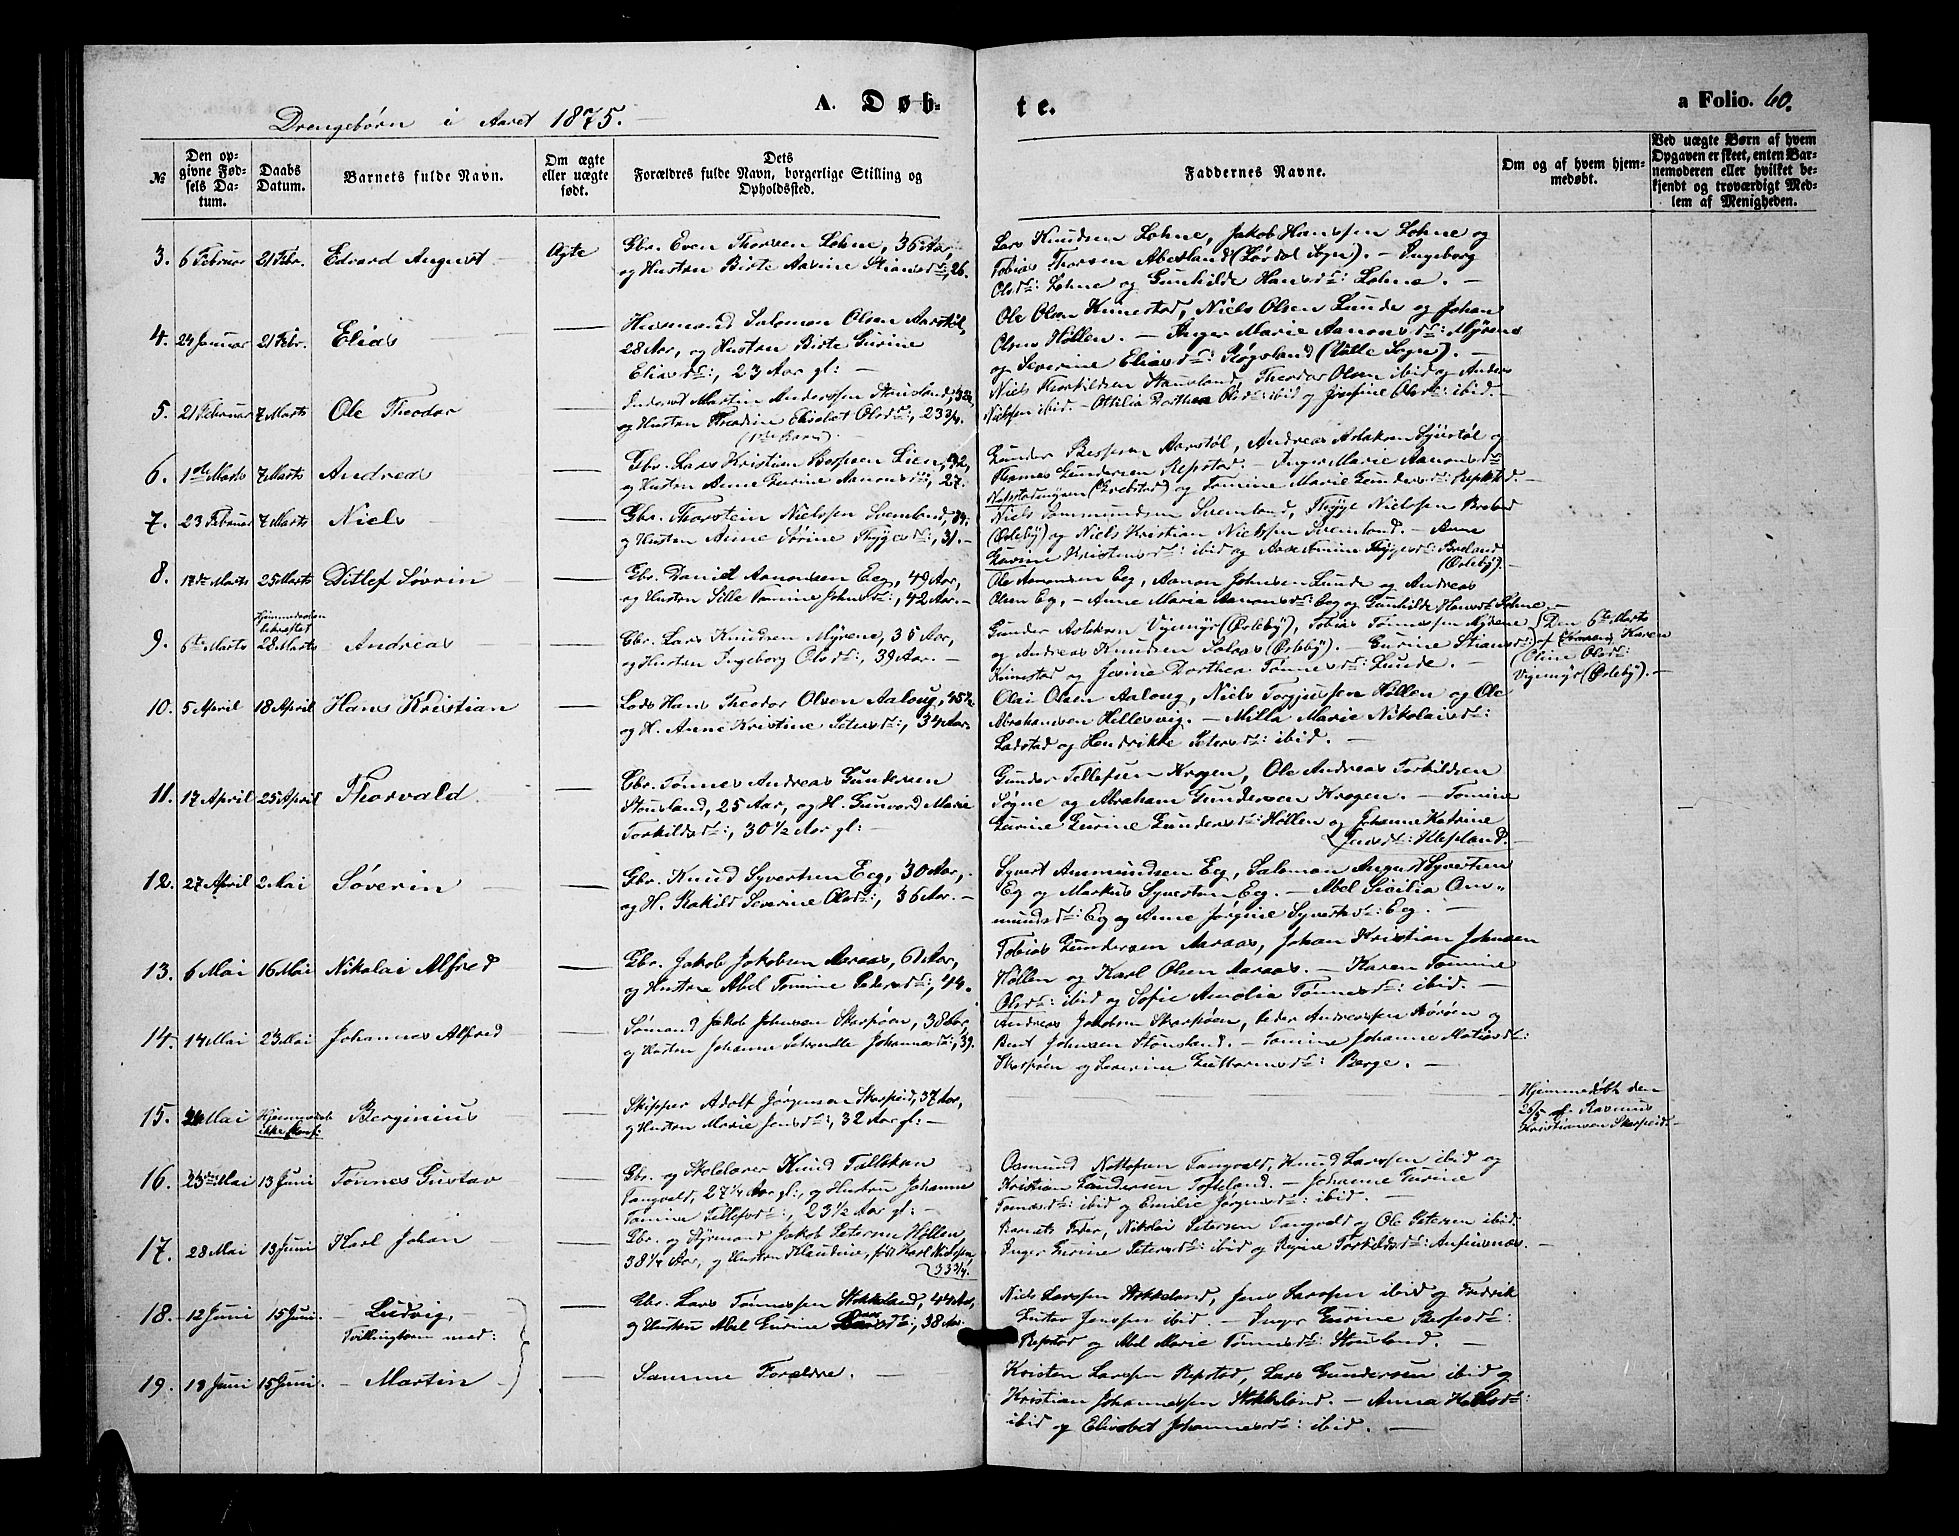 A. Døb-
te.
a Folio. 60.
Drengebørn i Aaret 1875.
№
Den op-
givne Fød-
sels Da-
tum.
Daabs
Datum.
Barnets fulde Navn.
Om ægte
eller uægte
født.
Dets
Forældres fulde Navn, borgerlige Stilling og
Opholdssted.
Faddernes Navne.
Om og af hvem hjem-
medøbt.
Ved uægte Børn af hvem
Opgaven er skeet, enten Bar-
nemoderen eller hvilket be-
kjendt og troværdigt Med-
lem af Menigheden.
3. 6 Februar 21 Febr. Edvard August Ægte
Gbr. Even Thorsen Lohne, 36 Aar,
og Hustru Birte Aasine Stiansd:, 26.
Lars Knudsen Lohne, Jakob Hanssen Lohne og
Tobias Thorsen Abesland - Ingeborg
Olsd: Lohne og Gunhilde Hansd: Lohne. -
4. 24 Januar 21 Febr. Elias
Husmand Salomon Olsen Aarstøl,
28 Aar, og Hustru Birte Gurine
Eliasd:, 23 Aar gl: -
Ole Olsen Kinnestad, Niels Olsen Lunde og Johan
Olsen Høllen. - Inger Marie Aanonsd: Myrene
og Severine Eliasd: (Valle Sogn). -
5. 21 Februar 7 Marts Ole Theodor
Inderst Martin Anderssen Stausland,
og Hustru Elisabet Olsd:, 23 3/4.
Niels Torkildsen Stausland, Theodor Olsen ibid og Anders
Nielsen ibid. - Ottilia Dorthea Olsd: ibid og Josefine Olsd: ibid. -
6. 1ste Marts 7 Marts Andreas
Gbr. Lars Kristian Bespsen Lien, 32,
og Hustru Anne Gurine Aanonsd:, 27.
Gunder Bespsen Aarstøl, Andreas Aslaksen og
Thomas Gundersen Repstad. - Inger Marie Aanonsd:
og Tomine Marie Gundersd: Repstad. -
7. 23 Februar 7 Marts Niels
Gbr. Thorstein Nielssen
og Hustru Anne Sørine Thygesd:, 31. -
Niels Thyge Nielssen Breland
(Øslebø) og Niels Kristian Nielssen - Anne
Kristensd: ibid og Aase Tomine Thygesd: Breland
(Øslebø). -
8. 17de Marts 25 Marts Ditlef Søvrin
Gbr. Daniel Aanonsen Eeg, 49 Aar,
og Hustru Sille Tomine Johnsd:, 42 Aar. -
Ole Aanonsen Eeg, Aanon Johnsen Lunde og Andreas
Olsen Eeg, - Anne Marie Aanonsd: Eeg og Gunhilde Hansd: Lohne. -
9. 6te Marts
Hjemmedaaben
bekræftet
28 Marts
Andreas
Gbr. Lars Knudsen Myrene, 35 Aar,
og Hustru Ingeborg Olsd:, 39 Aar. -
Gunder Aslaksen Vigemyr (Øslebø), Tobias Tønnessen Myrene
og Andreas Knudsen (Øslebø). - Gurine Stiansd:
Kinnestad og Dorthea Tønnesd: Lunde. -
Den 6te Marts
af Karen
Oline Olsd:
Vigemyr (Øslebø). -
10. 5 April 18 April Hans Kristian
Lods Hans Theodor Olsen Aalong, 45 1/2
og H. Anne Kristine Petersd:, 34 Aar.
Olai Olsen Aalong, Niels Torgjussen Høllen og Ole
Abrahamsen Hellesvig. - Milla Marie Nikolaisd:
Ladstad og Hendrikke Petersd: ibid. -
11. 17 April 25 April Thorvald
Gbr. Tønnes Andreas Gundersen
Stausland, 25 Aar, og H. Gunvord Marie
Torkildsd:, 30 1/2 Aar gl: -
Gunder Tellefsen Krogen, Ole Andreas Torkildsen
Søgne og Abraham Gundersen Krogen. - Tomine
Gurine Gundersd: Høllen og Johanne Katrine
Jensd: Klepland. -
12. 27 April 2 Mai Søverin
Gbr. Knud Syvertsen Eeg, 30 Aar,
og H. Severine Olsd:, 36 Aar. -
Syvert Aasmundsen Eeg, Salomon August Syvertsen
Eeg og Markus Syvertsen Eeg. - Abel Sicilia Om-
mundsd: Eeg og Anne Jørgine Syvertsd: Eeg. -
13. 6 Mai 16 Mai Nikolai Alfred
Gbr. Jakob Jakobsen Aaraas, 61 Aar,
og Hustru Abel Tomine Pedersd:, 44.
Tobias Gundersen Aaraas, Johan Kristian Johnsen
Høllen og Karl Olsen Aaraas. - Karen Tomine
Olsd: ibid og Sofie Amalia Tønnesd: ibid. -
14. 14 Mai 23 Mai Johannes Alfred
Sømand Jakob Johnsen Skarpøen, 38 Aar,
og Hustru Johanne Johannesd:, 39.
Andreas Jakobsen Skarpøen, Peder Andreassen og
Bent Johnsen Stausland. - Tomine Johanne Matiasd:
Skarpøen og Severine Guttormsd: Berge. -
15. 24 Mai
Hjemmedøbt
ikke
Berginius
Skipper Adolf Jørgensen Skarpeid, 37 Aar,
og Hustru Marie Jensd:, 32 Aar gl: -
Hjemmedøbt den
26/5 af Rasmus
Kristiansen Skarpeid. -
16. 23de Mai 13 Juni Tønnes Gustav
Gbr. og Skolelærer Knud Tallaksen
Tangvald, 27 1/4 Aar gl:, og Hustru Johanne
Tomine Tellefsd:, 23 1/2 Aar gl: -
Osmund Nottofsen Tangvald, Knud Larssen ibid og
Kristian Gundersen Tofteland. - Johanne Gurine
Tomasd: ibid og Emilie Jørgensd: ibid. -
17. 28 Mai 13 Juni Karl Johan
Gbr. og Styrmand Jakob Petersen Høllen,
38 1/4 Aar, og Hustru Klaudine, født Karl Nielssen,
33 3/4.
Barnets Fader, Nikolai Petersen Tangvald og Ole Petersen ibid.
Inger Gurine Petersd: ibid og Regine Torkildsd: Ausvignæs. -
18. 12 Juni 15 Juni - Ludvig, -
Tvillingbarn med:
Gbr. Lars Tønnessen Stokkeland, 44 Aar,
og Hustru Abel Gurine, 38 Aar
Niels Larssen Stokkeland, Jens Larssen ibid og Fredrik
Gustav Jenssen ibid. - Inger Gurine Bespsd:
Repstad og Abel Marie Tønnesd: Stausland. -
19. 13 Juni 15 Juni. - Martin -
Samme Forældre. -
Kristen Larssen Repstad, Lars Gundersen ibid og
Kristian Johannessen Stokkeland. - Anna
ibid og Elisabet Johannesd: ibid. -